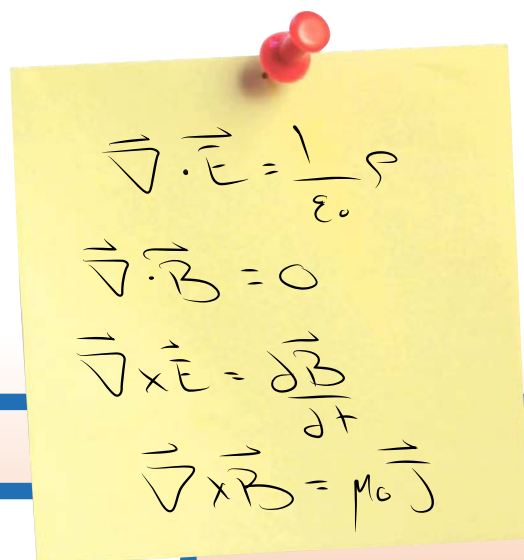 ∇⃗ · E⃗ = 1/ε₀ ρ
∇⃗ · B⃗ = 0
∇⃗ × E⃗ = ∂B⃗/∂t
∇⃗ × B⃗ = μ₀ J⃗